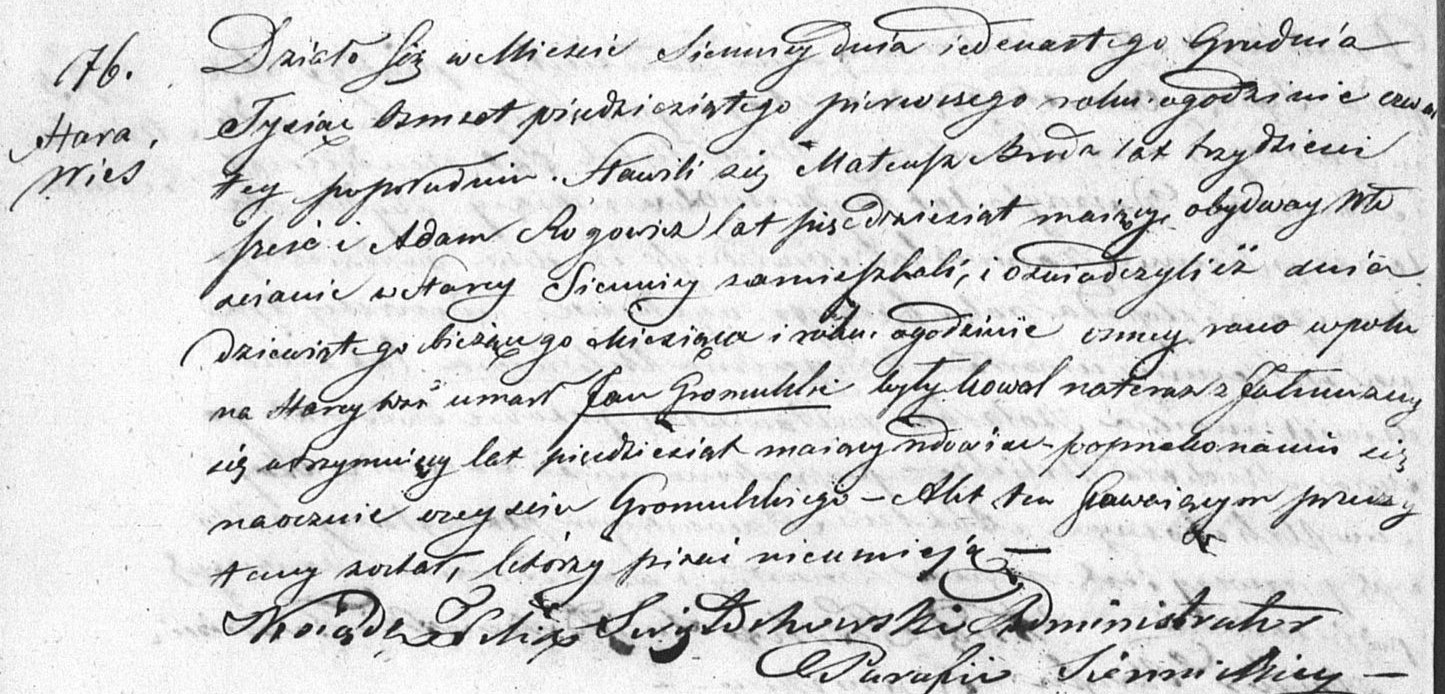 76.
Stara
Wieś
Działo się w Mieście Siennicy dnia iedenastego Grudnia
Tysiąc Osmset piędziesiątego pierwszego roku o godzinie czwar
tey popołudniu. Stawili się Mateusz Broda lat trzydzieści
sześć i Adam Rogowicz lat pięcdziesiąt maiący obydway Wło
scianie w Starey Siennicy zamieszkali, i oświadczyli iż dnia
dziewiątego bieżącego Miesiąca i roku o godzinie osmey rano w polu
na Starey wsi umarł Jan Gromulski były kowal na teraz z Jałmużny
się utrzymuiący lat pięcdziesiąt maiący wdowiec po przekonaniu się
naocznie o zeyściu Gromulskiego – Akt ten Stawaiącym przeczy
tany został, którzy pisać nieumieją –
Xsiądz Felix Administrator
Parafii Siennickiey –